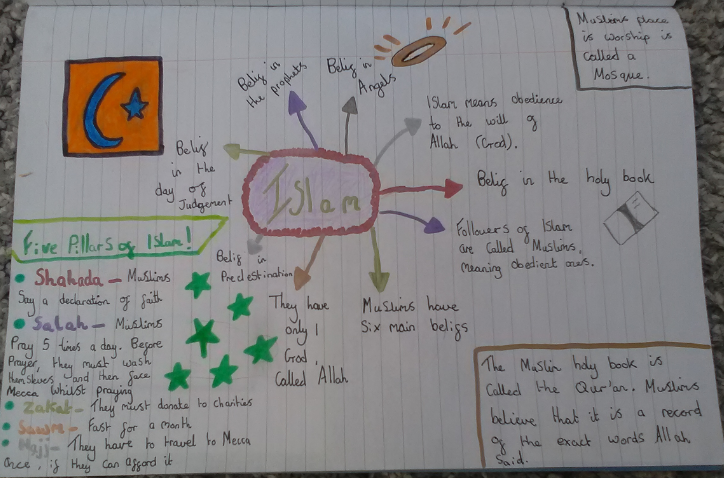 Muslims place
is worship is
called a
Mosque.
Belif in
the prophets
Belif in
Angels
Islam means obedience
to the will of
Allah (God).
Belif
in the
day of
Judgement
Islam
Belif in the holy book
Followers of Islam
are called Muslims,
meaning obedient ones.
Belif in
Predestination
They have
only 1
God,
Called Allah
Muslims have
Six main belifs
Five Pillars of Islam!
Shahada - Muslims
Say a declaration of faith
Salah - Muslims
Pray 5 times a day. Before
Prayer, they must wash
themselves and then face
Mecca whilst praying
Zakat - They must donate to charities
Sawm - Fast for a month
Hajj - They have to travel to Mecca
once, if they can afford it
The Muslim holy book is
Called the Qur'an. Muslims
believe that it is a record
of the exact words Allah
Said.